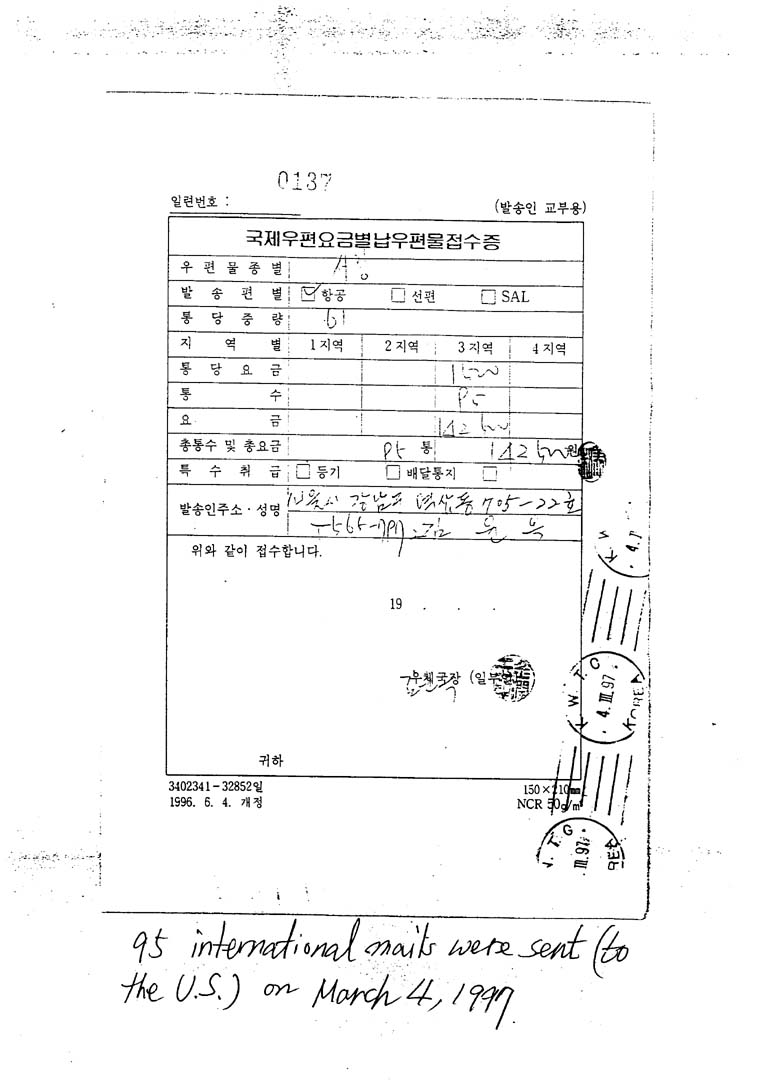 0137
일련번호 :
(발송인 교부용)
국제우편요금별납우편물접수증
우편물종별
발송편별 항공 선편 SAL
통당중량
지역별 1지역 2지역 3지역 4지역
통당요금 1500
통수 95
요금 142500
총통수 및 총요금 95 통 142500 원
특수취급 등기 배달통지
발송인주소·성명 서울시 강남구 역삼동 705-22호
김
위와 같이 접수합니다.
19 . . .
우체국장 (일부인)
귀하
3402341-32852일
1996. 6. 4. 개정
150×210㎜
NCR 50g/㎡
K. W. T. C 4. III. 97. KOREA
95 international mails were sent (to
the U.S.) on March 4, 1997.